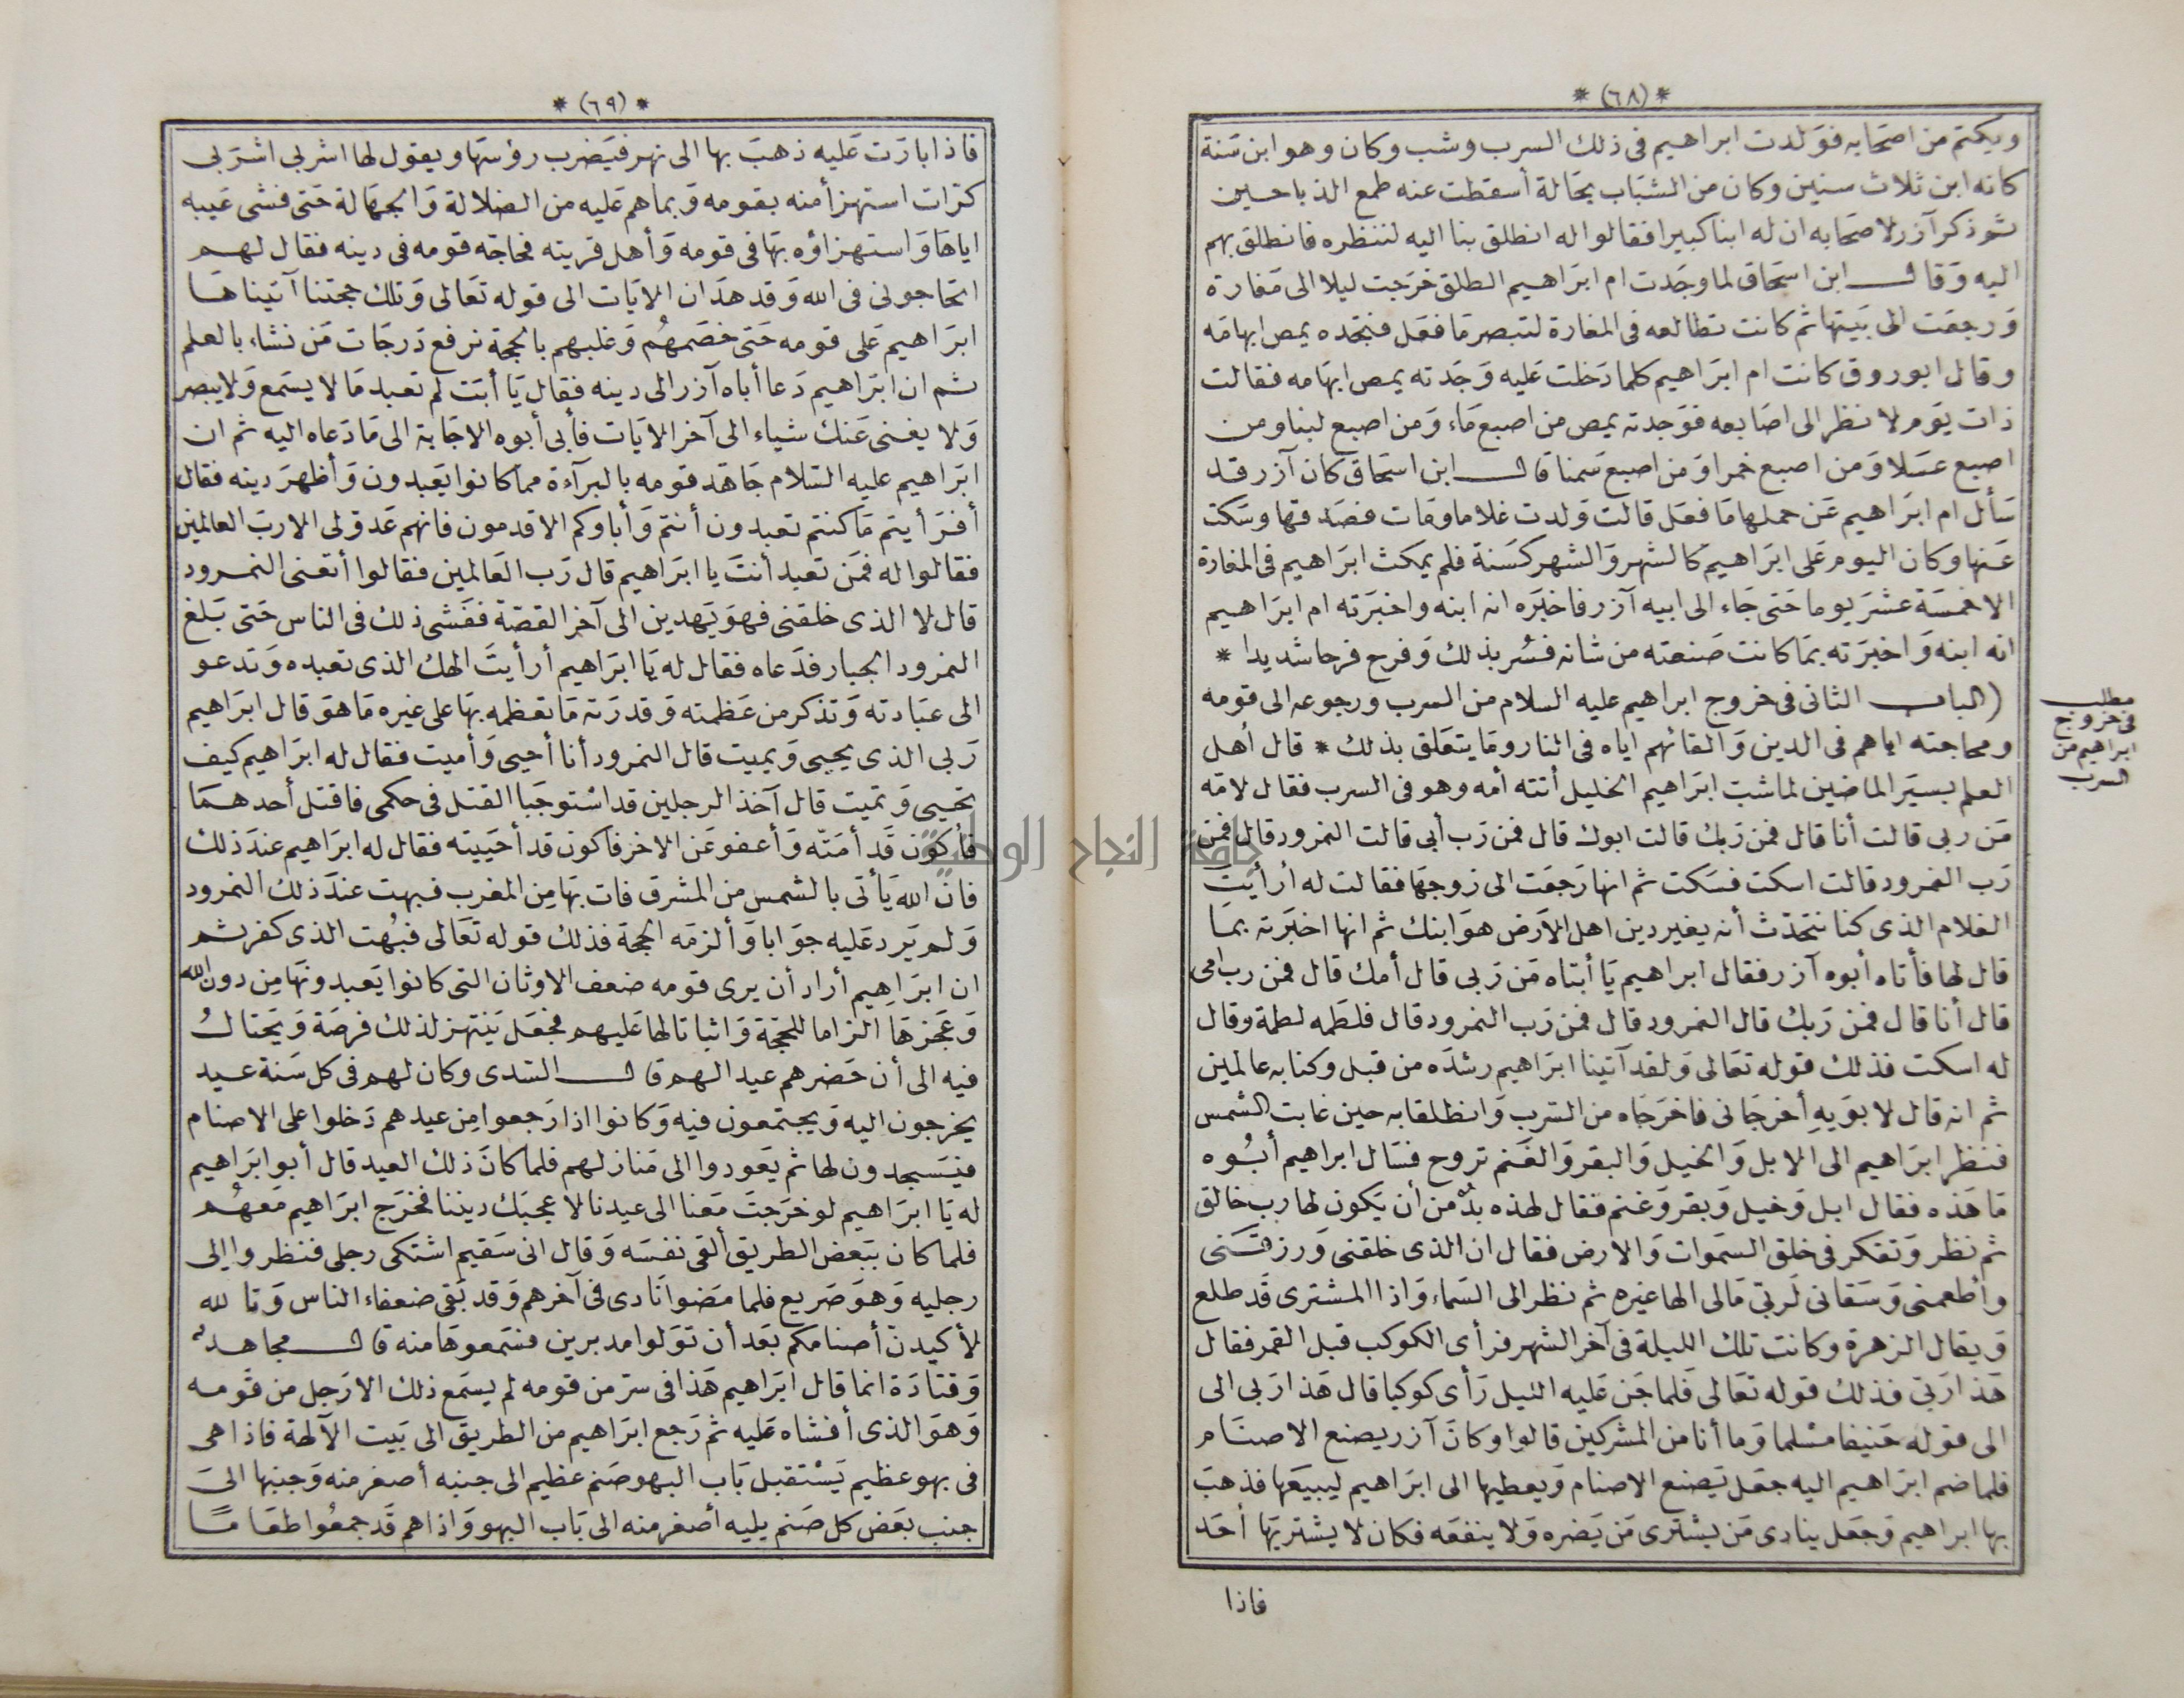 * (٦٨) *
ويكتم من اصحابه فولدت ابراهيم فى ذلك السرب وشب وكان وهو ابن سَنة
كانه ابن ثلاث سنين وكان من الشبَاب بحَالة أسقطت عنه طمع الذباحين
ثم ذكر آزر لاصحَابه ان له ابنا كبيرا فقالوا له انطلق بنا اليه لننظره فانطلق بهم
اليه وَقال ابن اسحَاق لما وجَدت ام ابرَاهيم الطلق خرَجت ليلا الى مَغارة
وَرجعَت الى بَيتها ثم كانت تطالعه فى المغارة لتبصر مَا فعَل فتجَده يمص ابهامَه
وقال ابوروق كانت ام ابرَاهيم كلما دَخلت عَليه وَجَدته يمص ابهَامه فقالت
ذات يَوم لا نظر الى اصَابعه فوَجدته يمص من اصبع مَاء وَمن اصبع لبنا ومن
اصبع عسَلا وَمن اصبع خمرا وَمن اصبع سَمنا قال ابن اسحَاق كان آزر قد
سَأل ام ابرَاهيم عَن حملها مَا فعَل قالت وَلدت غلاما ومَات فصَدقها وسَكت
عَنها وكان اليوم عَلى ابرَاهيم كالشهر وَالشهر كسَنة فلم يمكث ابرَاهيم فى المغارة
الا خمسَة عشَر يوما حَتى جَاء الى ابيه آزر فاخبَره انه ابنه واخبَرته ام ابرَاهيم
انه ابنه وَاخبَرَته بمَا كانت صَنعته من شانه فسُر بذلك وَفرح فرحا شديدا *
(الباب الثانى فى خروج ابراهيم عليه السلام من السرب ورجوعه الى قومه
ومحاجته اياهم فى الدين وَالقائهم اياه فى النار ومَا يتعَلق بذلك * قال أهل
العلم بسيَر الماضين لما شبّ ابرَاهيم الخليل أتته أمه وهو فى السرب فقال لامّه
مَن ربى قالت أنا قال فمن رَبك قالت ابوك قال فمن رَب أبى قالت النمرود قال فمن
رَب النمرود قالت اسكت فسَكت ثم انها رَجعَت الى زوجهَا فقالت له أرأيت
الغلام الذى كنا نتحَدّث أنه يغير دين اهل الاَرض هوَ ابنك ثم انها اخبَرته بما
قال لها فأتاه أبوه آزر فقال ابراهيم يَا أبتاه مَن رَبى قال أمك قال فمن رب امى
قال أنا قال فمن رَبك قال النمرود قال فمن رَب النمرود قال فلطَمه لطمة وقال
له اسكت فذلك قوله تعَالى وَلقد آتينا ابرَاهيم رشدَه من قبل وكنا به عالمين
ثم انه قال لابوَيهِ أخرجَانى فاخرَجَاه من السَرب وَانطلقا به حين غابت الشمس
فنظر ابرَاهيم الى الابل وَالخيل وَالبقر وَالغَنم تروح فسَال ابراهيم أبُوه
مَا هَذه فقال ابل وَخيل وَبقر وَغنم فقال لهذه بدٌّ من أن يَكون لها رب خالق
ثم نظر وَتفكر فى خلق السمَوات وَالارض فقال ان الذى خلقنى وَرزقنى
وأطعمنى وَسَقانى لَربّى مَالى الها غيره ثم نظر الى السَماء وَاذا المشترى قَد طلع
وَيقال الزهرة وكانت تلك الليلة فى آخر الشهر فرأى الكوكب قبل القمر فقال
هَذا رَبّى فذلك قوله تعَالى فلما جَن عَليه الليل رَأى كوكبا قال هَذا رَبى الى
الى قوله حَنيفا مسْلما وَما أنا من المشركين قالوا وكانَ آزر يصنع الاصنَام
فلما ضم ابرَاهيم اليه جعَل يَصنع الاصنام وَيعطيها الى ابرَاهيم ليبيعَها فذهبَ
بها ابراهيم وَجعَل ينادى مَن يشترى مَن يَضره وَلا ينفعَه فكان لا يشتريهَا أحَد
فاذا
مطلب
فى خروج
ابراهيم من
السرب
* (٦٩) *
فاذا بارَت عَليه ذهبَ بها الى نهر فيَضرب رؤسهَا ويقول لها اشربى اشرَبى
كرّات استهزأ منه بقومه وَبما هم عَليه من الضلالة وَالجهَالة حَتى فشى عَيبه
اياهَا وَاستهزاؤه بهَا فى قومه وَأهل قريته فحاجّه قومه فى دينه فقال لهم
اتحَاجونى فى الله وَقد هدَان الايَات الى قوله تعَالى وَتلك حجتنا آتيناها
ابرَاهيم عَلى قومه حَتى خصَمهُم وَغلبهم بالحجة نرفع دَرجَات مَن نشاء بالعلم
ثم ان ابرَاهيم دَعا أباه آزر الى دينه فقال يَا أبَت لم تعبد مَا لا يسَمع وَلا يبصر
وَلا يغنى عَنك شياء الى آخر الايَات فأبى أبوه الاجَابة الى مَا دَعاه اليه ثم ان
ابرَاهيم عليه السّلام جَاهَد قومه بالبرآءة مما كانوا يَعبدون وَأظهرَ دينه فقال
أفرَأيتم مَا كنتم تعبدون أنتم وَأباوكم الاقدمون فانهم عَدوّ لى الا ربّ العالمين
فقالوا له فمَن تعبد أنتَ يا ابرَاهيم قال رَب العَالمين فقالوا أتعنى النمرود
قال لا الذى خلقنى فهوَ يَهدين الى آخر القصّة ففشى ذلك فى الناس حَتى بَلغ
النمرود الجبار فدَعاه فقال له يَا ابرَاهيم أرأيتَ الهك الذى تعبده وَتدعو
الى عبَادته وَتذكر من عَظمته وَقدرَته مَا تعَظمه بهَا على غيره مَا هوَ قال ابرَاهيم
رَبى الذى يحيى وَيميت قال النمرود أنا أحيى وَأميت فقال له ابرَاهيم كيف
تحيى وَتميت قال آخذ الرجلين قد استوجَبا القتل فى حكمى فاقتل أحدهمَا
فأكون قَد أمَتّه وَأعفو عَن الاخر فاكون قد أحيَيته فقال له ابرَاهيم عندَ ذلك
فان الله يَأتى بالشمس من المشرق فات بهَا مِن المغرب فبهت عندَ ذلك النمرود
وَلم يَرد عَليه جوَابا وَألزمَه الحجة فذلك قوله تعَالى فبُهت الذى كفر ثم
ان ابرَاهِيم أراد أن يرى قومه ضعف الاوثان التى كانوا يَعبدونَها مِن دون الله
وَعَجزهَا الزاما للحجّة وَاثباتا لها عَليهم فجعَل يَنتهز لذلك فرصَة وَيَحتالُ
فيه الى أن حَضرهم عيد لهم قال السّدى وكان لهم فى كل سَنة عيد
يخرجون اليه وَيجتمعون فيه وَكانوا اذا رَجعوا مِن عيدهم دَخلوا على الاصنام
فيَسَجدون لها ثم يَعودوا الى مَنازلهم فلما كانَ ذلك العيد قال أبو ابرَاهيم
له يَا ابرَاهيم لو خرَجتَ مَعَنا الى عيدنا لاعجبَك ديننا فخرَج ابرَاهيم مَعهُم
فلما كان ببَعض الطريق ألقى نفسَه وَقال انى سَقيم اشتكى رجلى فنظروا إلى
رجليه وَهوَ صَريع فلما مَضوا نَادى فى آخرهم وَقد بَقى ضعفاء الناس وَتالله
لأكيدنّ أصنامكم بعَد أن توَلوا مدبرين فسَمعوهَا منه قال مجاهد
وَقتادَة انما قال ابرَاهيم هَذا فى سرّ من قومه لم يسمَع ذلك الا رَجل من قومه
وَهوَ الذى أفشاه عَليه ثم رَجع ابرَاهيم من الطريق الى بَيت الآلهة فاذا هى
فى بهو عظيم يَسْتقبل بَاب البهو صَنم عظيم الى جنبه أصغر منه وَجنبها الىَ
جنب بعَض كل صَنم يليه أصغر منه الى بَاب البهو وَاذا هم قَد جمعُوا طعَامًا
جامعة النجاح الوطنية